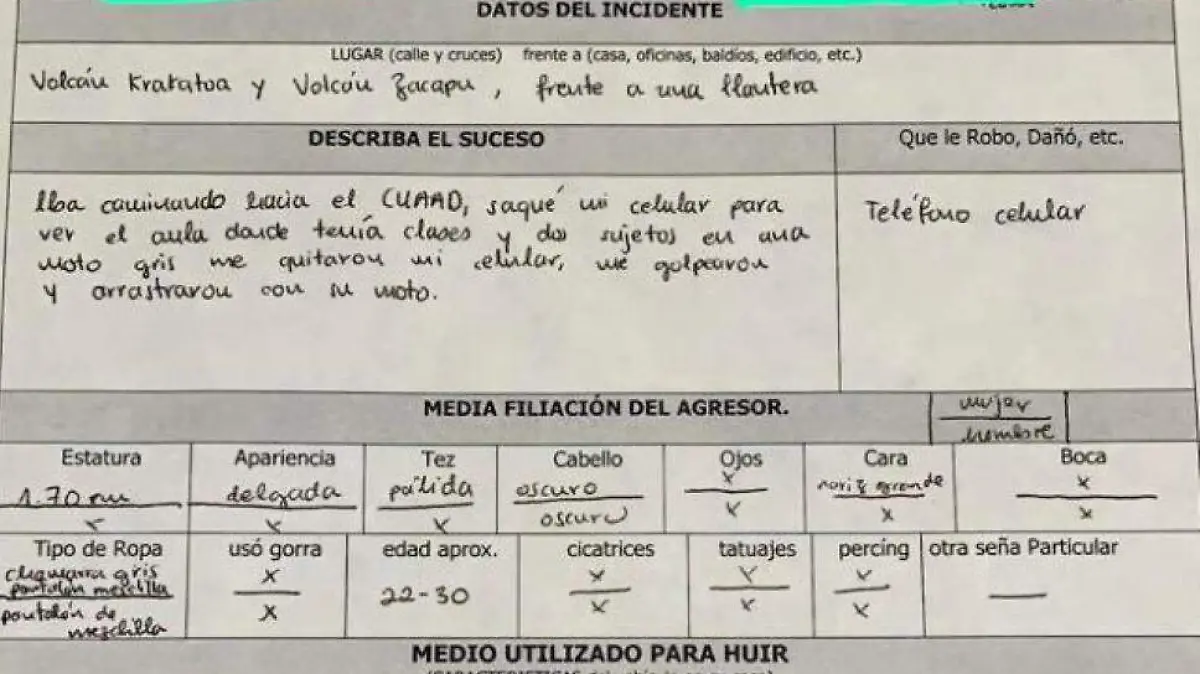 DATOS DEL INCIDENTE
LUGAR (calle y cruces) frente a (casa, oficinas, baldíos, edificio, etc.)
Volcán Krakatoa y Volcán Zacapu, frente a una llantera
DESCRIBA EL SUCESO
Que le Robo, Dañó, etc.
Iba caminando hacia el CUAAD, saqué mi celular para
ver el aula donde tenía clases y dos sujetos en una
moto gris me quitaron mi celular, me golpearon
y arrastraron con su moto.
Teléfono celular
MEDIA FILIACIÓN DEL AGRESOR.
mujer
hombre
Estatura Apariencia Tez Cabello Ojos Cara Boca
1.70 delgada pálida oscuro x nariz grande x
x x x oscuro x x x
Tipo de Ropa usó gorra edad aprox. cicatrices tatuajes percíng otra seña Particular
chamarra gris x x x x
pantalón mezclilla 22-30 —
pantalón de x x x x
mezclilla
MEDIO UTILIZADO PARA HUIR